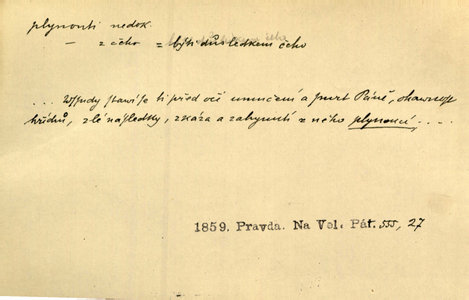 plynouti nedok.
— z čeho = býti důsledkem čeho
... Wssudy stawí se ti před oči umučení a smrt Páně,
hříchů, zlé následky, zkáza a zahynutí z něho plynoucí, ....
1859. Pravda. Na Vel. Pát. 555, 27